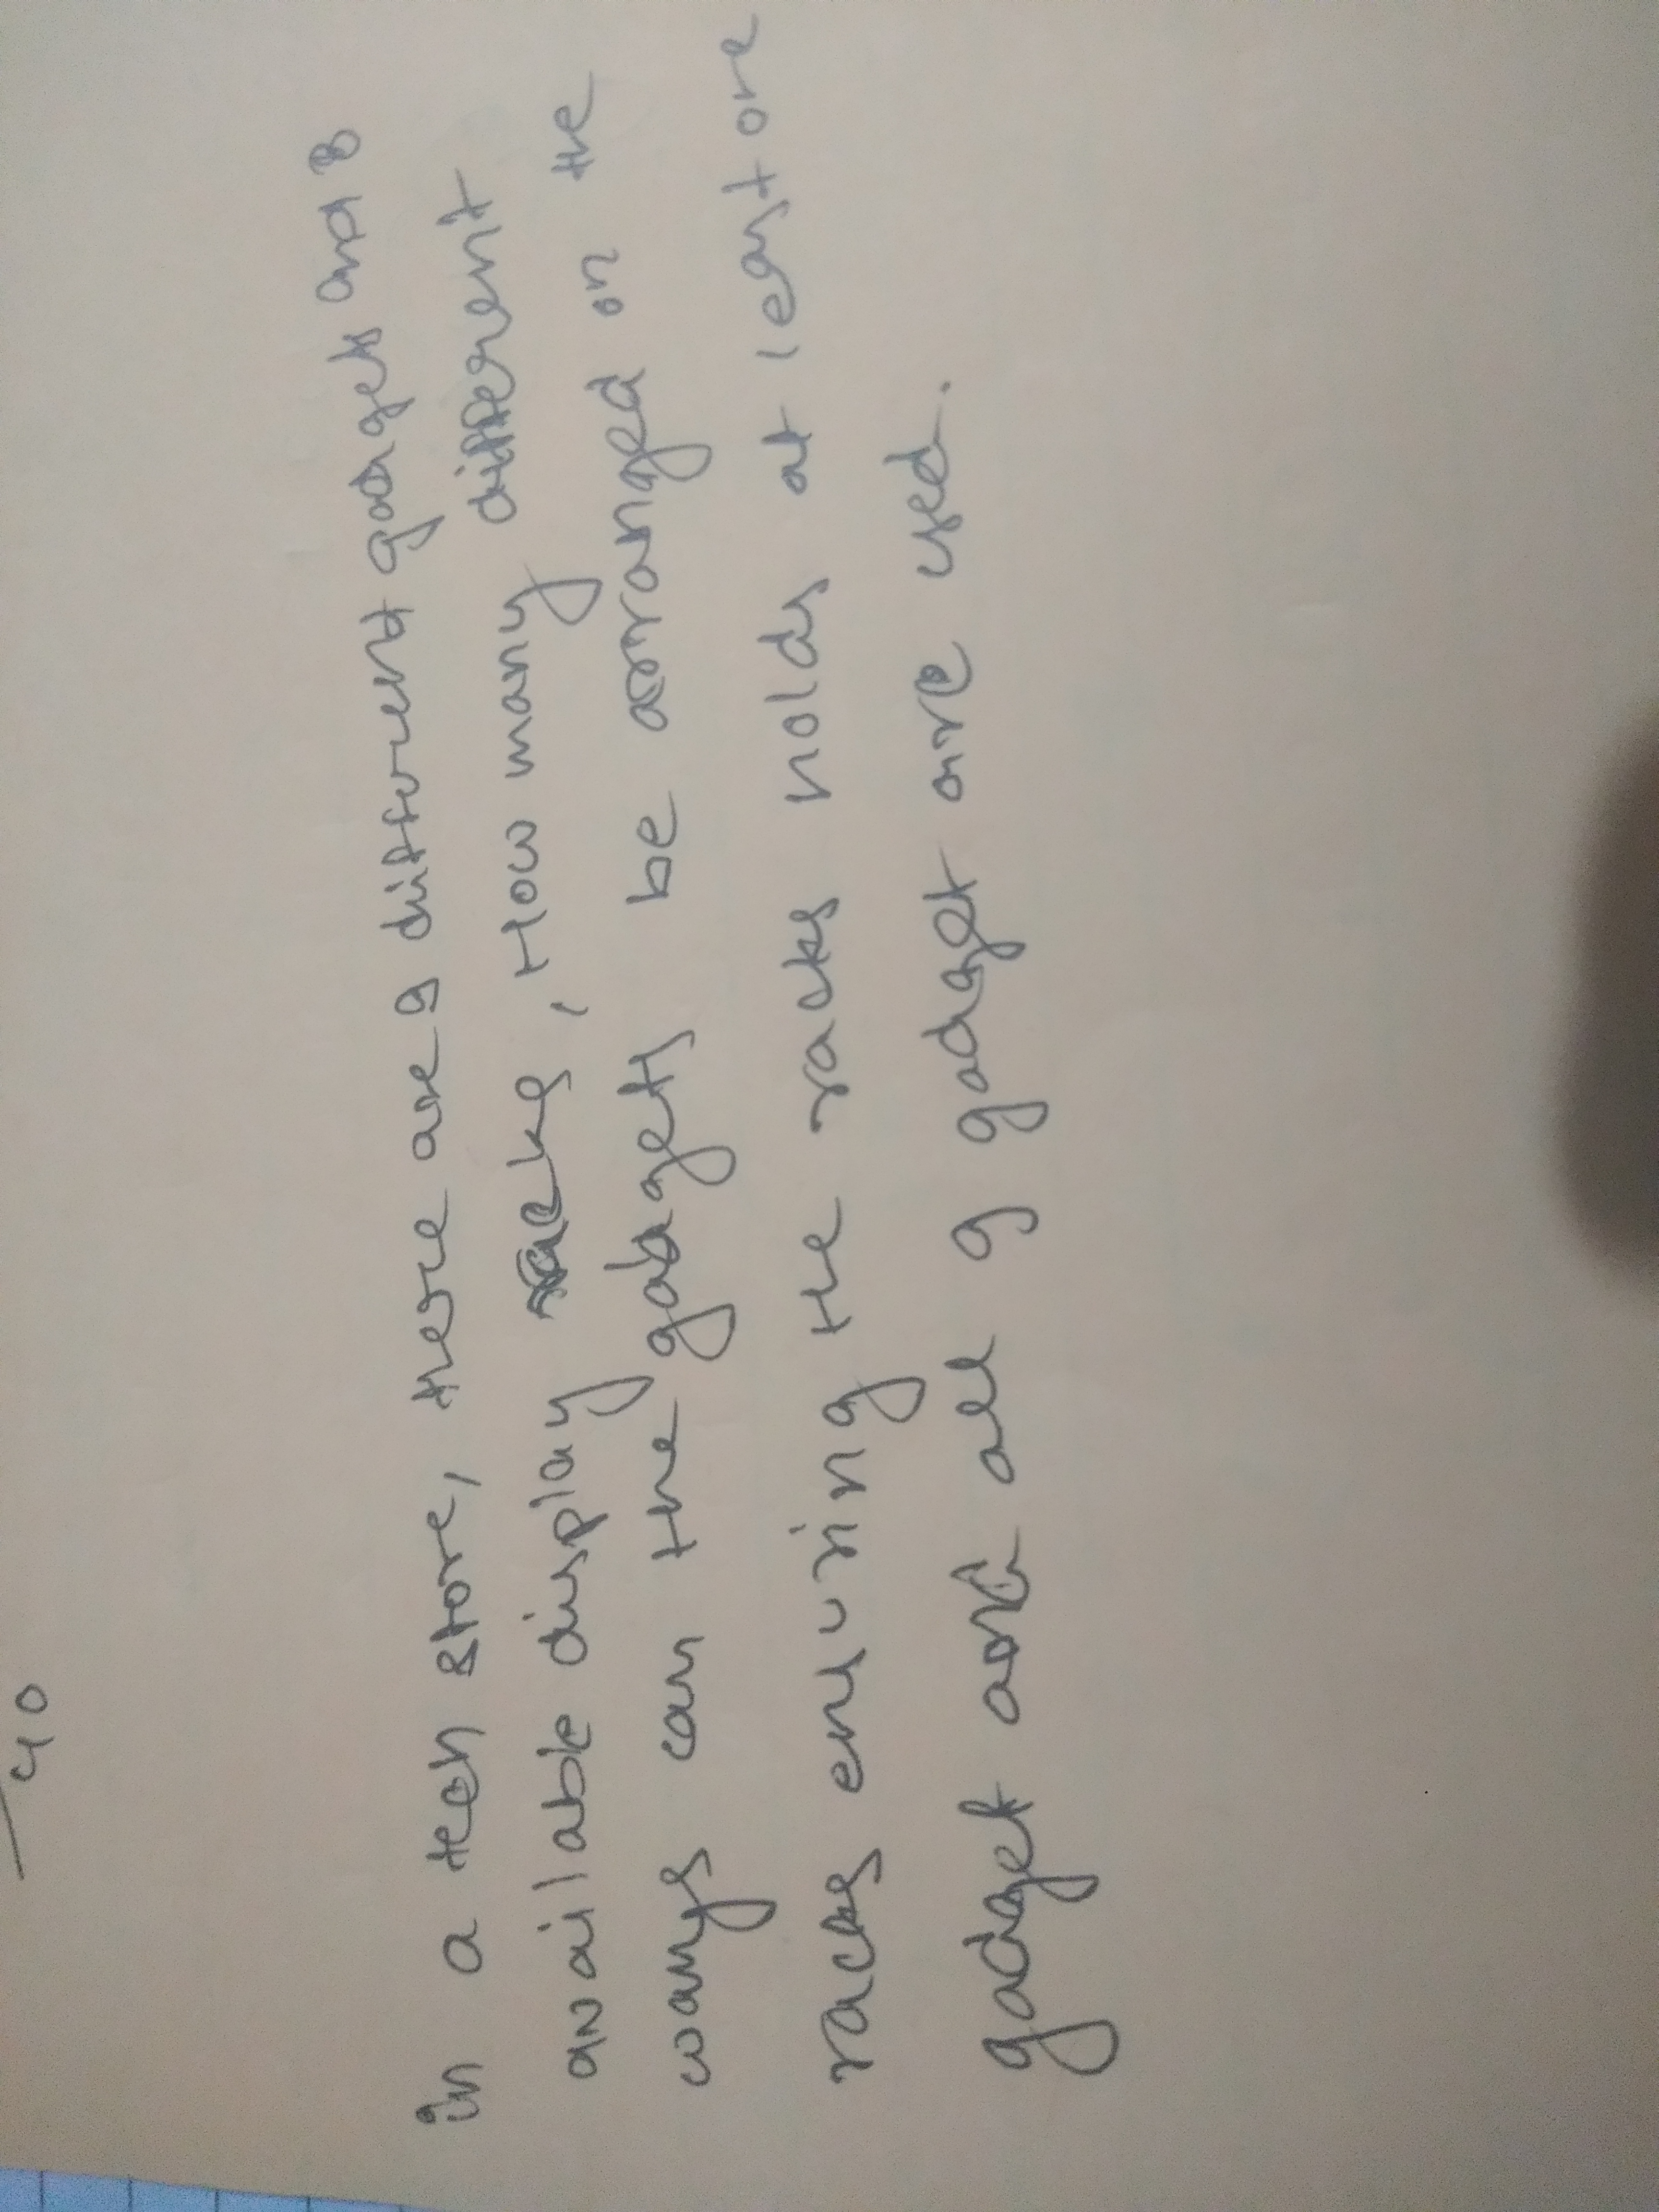 40
in a tech store, there are 9 different gadgets and 8
available display racks, How many different
ways can the gadgets be arranged on the
racks ensuring the racks holds at least one
gadget and all 9 gadget are used.